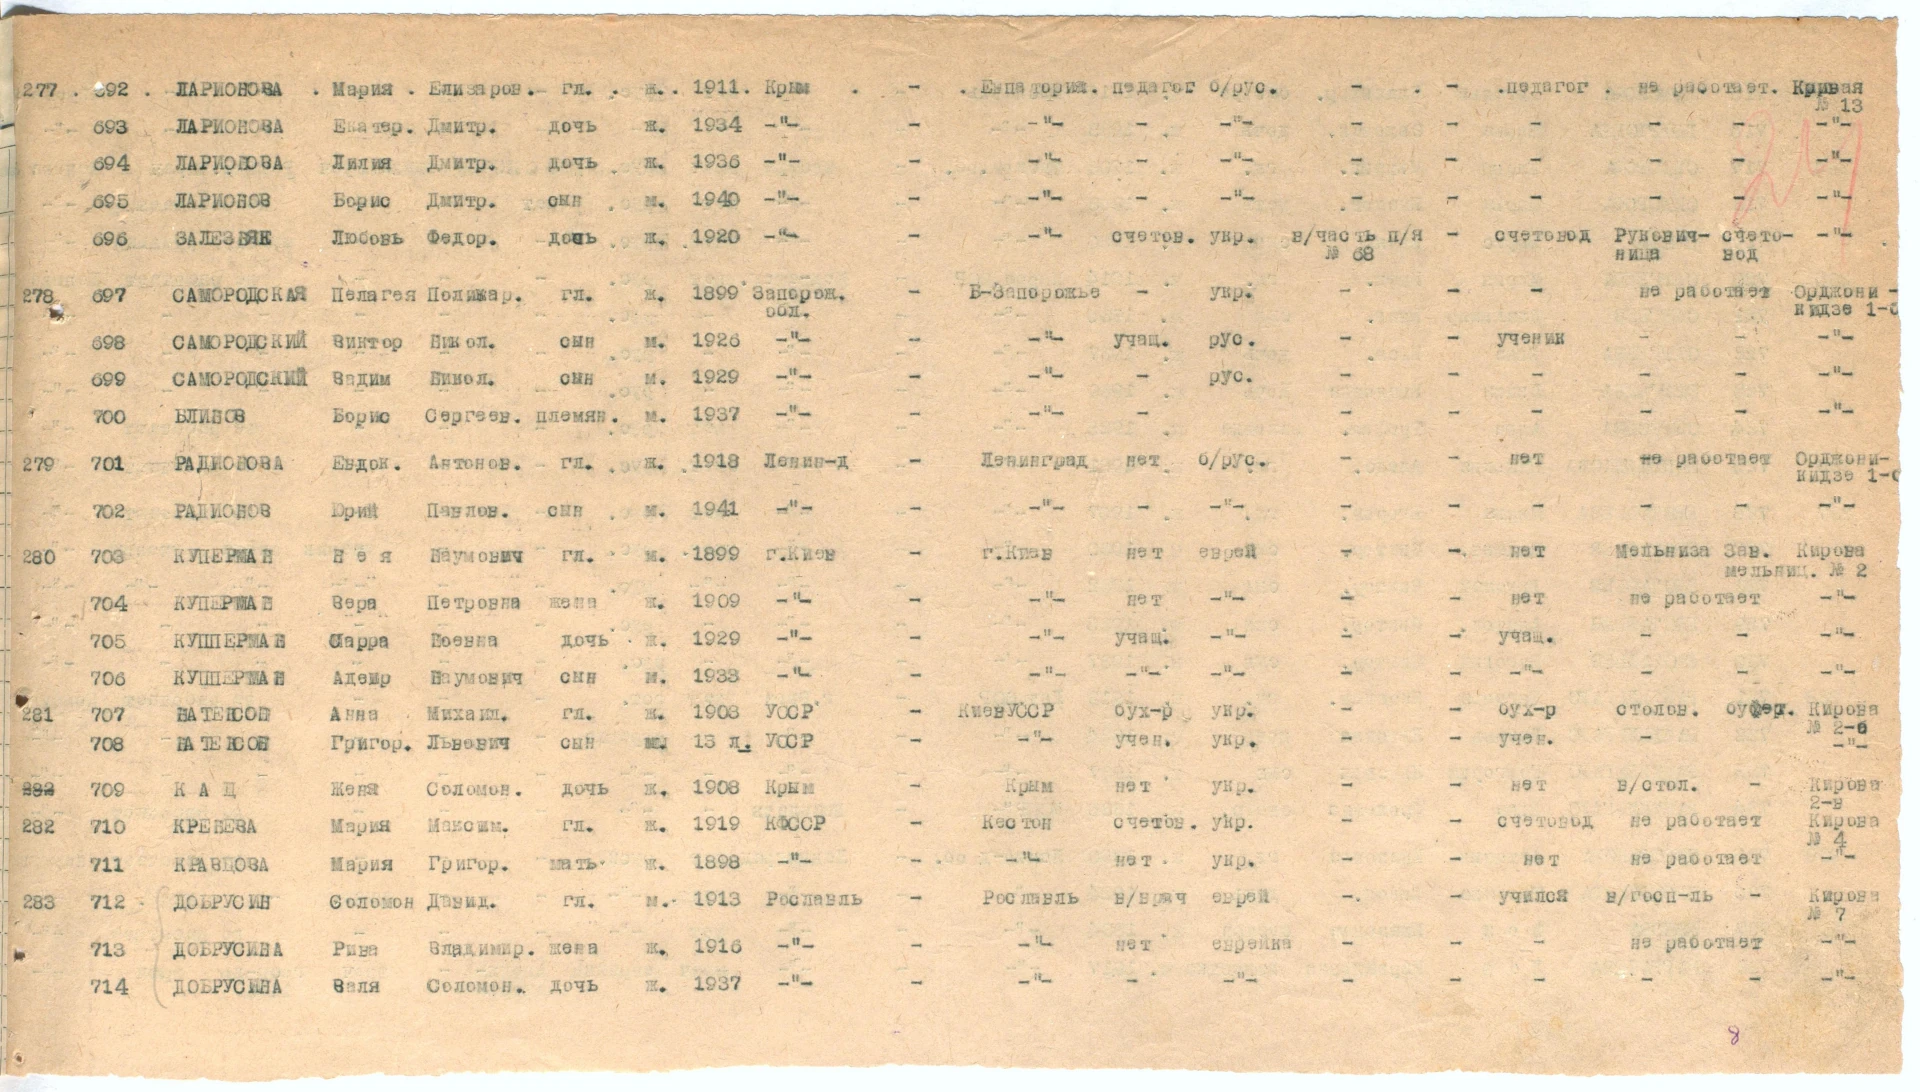 277 . 692 . ЛАРИОНОВА . Мария . Елизаров. гл. . ж. . 1911. Крым . - . Евпатория. педагог б/рус. - - .педагог . не работает. Кривая
№ 13
693 ЛАРИОНОВА Екатер. Дмитр. дочь ж. 1934 -"- - -"- - -"- - - - - - -"-
694 ЛАРИОНОВА Лилия Дмитр. дочь ж. 1936 -"- - -"- - -"- - - - - - -"-
695 ЛАРИОНОВ Борис Дмитр. сын м. 1940 -"- - -"- - -"- - - - - - -"-
696 ЗАЛЕЗНЯК Любовь Федор. дочь ж. 1920 -"- -"- счетов. укр. в/часть п/я - счетовод Рукович- счето- -"-
№ 68 ница вод
278 697 САМОРОДСКАЯ Пелагея Поликар. гл. ж. 1899 Запорож. - Б-Запорожье - укр. - - - не работает Орджони -
обл. кидзе 1-с
698 САМОРОДСКИЙ Виктор Никол. сын м. 1926 -"- -"- учащ. рус. - - ученик - - -"-
699 САМОРОДСКИЙ Вадим Никол. сын м. 1929 -"- -"- - рус. - - - - - -"-
700 БЛИНОВ Борис Сергеев. племян. м. 1937 -"- -"- - - - - - - -"-
279 701 РАДИОНОВА Евдок. Антонов. гл. ж. 1918 Ленин-д - Ленинград нет б/рус. - - нет не работает Орджони-
кидзе 1-с
702 РАДИОНОВ Юрий Павлов. сын м. 1941 -"- - -"- - -"- - - - - - -"-
280 703 КУПЕРМАН Н о я Наумович гл. м. 1899 г.Киев - г.Киев нет еврей - - нет Мельница Зав. Кирова
мельниц. № 2
704 КУПЕРМАН Вера Петровна жена ж. 1909 -"- - -"- нет -"- - - нет не работает -"-
705 КУППЕРМАН Сарра Ноевна дочь ж. 1929 -"- - -"- учащ. -"- - - учащ. - - -"-
706 КУППЕРМАН Адемр Наумович сын м. 1933 -"- - -"- -"- -"- - - -"- - - -"-
281 707 НАТЕНСОН Анна Михаил. гл. ж. 1903 УССР - КиевУССР бух-р укр. - - бух-р столов. буфет. Кирова
№ 2-б
708 НАТЕНСОН Григор. Львович сын м. 13 л. УССР - -"- учен. укр. - - учен. - -"-
282 709 К А Ц Женя Соломон. дочь ж. 1908 Крым - Крым нет укр. - - нет в/стол. - Кирова
2-в
282 710 КРЕНЕВА Мария Максим. гл. ж. 1919 КФССР - Кестон счетов. укр. - - счетовод не работает Кирова
№ 4
711 КРАВЦОВА Мария Григор. мать ж. 1898 -"- - -"- нет укр. - - нет не работает -"-
283 712 ДОБРУСИН Соломон Давид. гл. м. 1913 Рославль - Рославль в/врач еврей - - учился в/госп-ль - Кирова
№ 7
713 ДОБРУСИНА Рива Владимир. жена ж. 1916 -"- - -"- нет еврейка - - - не работает -"-
714 ДОБРУСИНА Валя Соломон. дочь ж. 1937 -"- - -"- - -"- - - - - - -"-
8